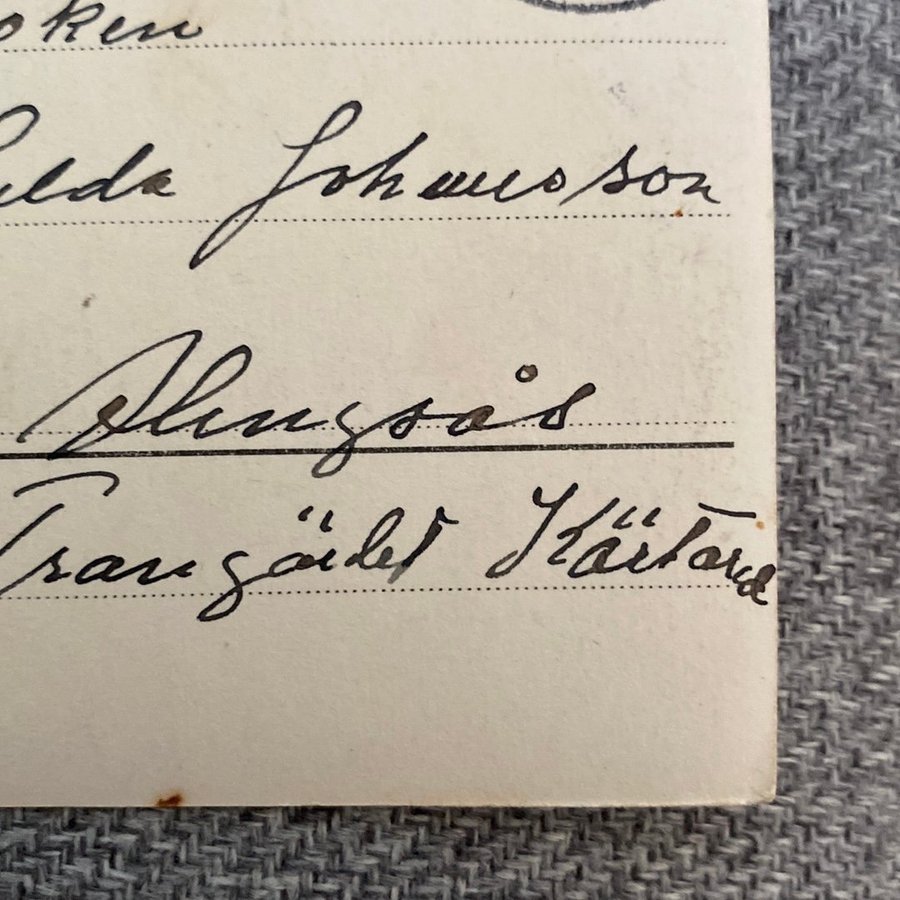 oken
ilda Johansson
Alingsås
Trangärdet Kärtared